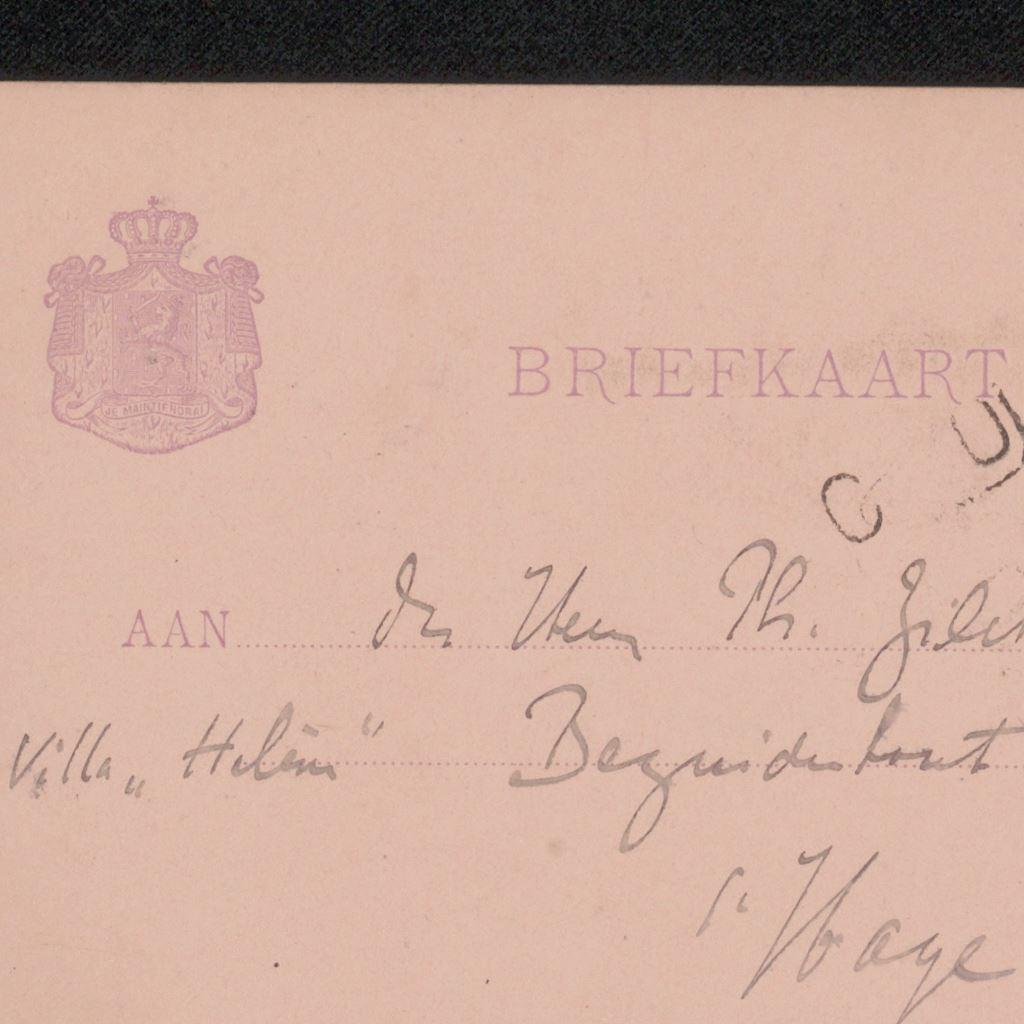 JE MAINTIENDRAI
BRIEFKAART
G
AAN den Heer Th.
Villa „Helène" Bezuidenhout
's Hage